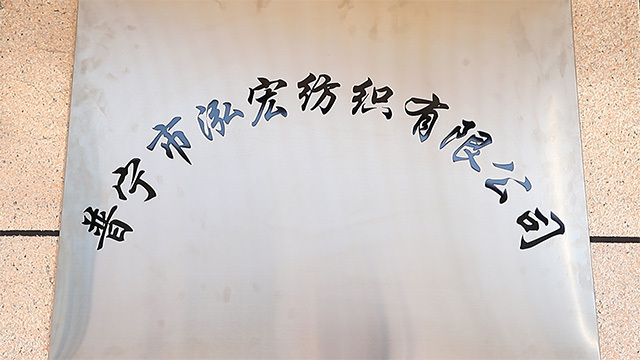 普宁市泓宏纺织有限公司